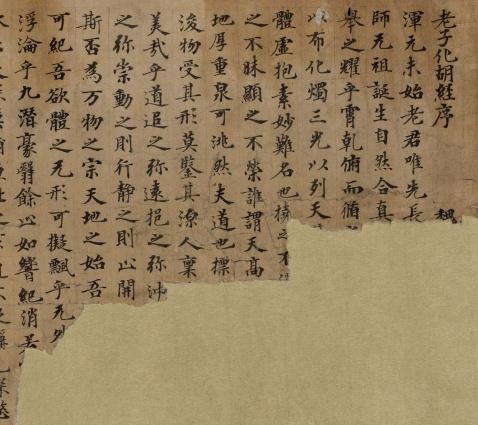 老子化胡經序　魏
渾元未始老君唯先長
師元祖誕生自然合真
舉之耀乎霄乾俯而循
以布化燭三光以列天
體虛抱素妙難名也掩之不
之不昧顯之不榮誰謂天高
地厚重泉可洮然夫道也標
浚物受其形莫鑒其源人稟
美哉乎道追之弥遠挹之弥沖
之弥崇動之則行静之則止開
斯否為万物之宗天地之始吾
可紀吾欲體之无形可擬飄乎无外
浮淪乎九潛豪翳餘以如響紀消若